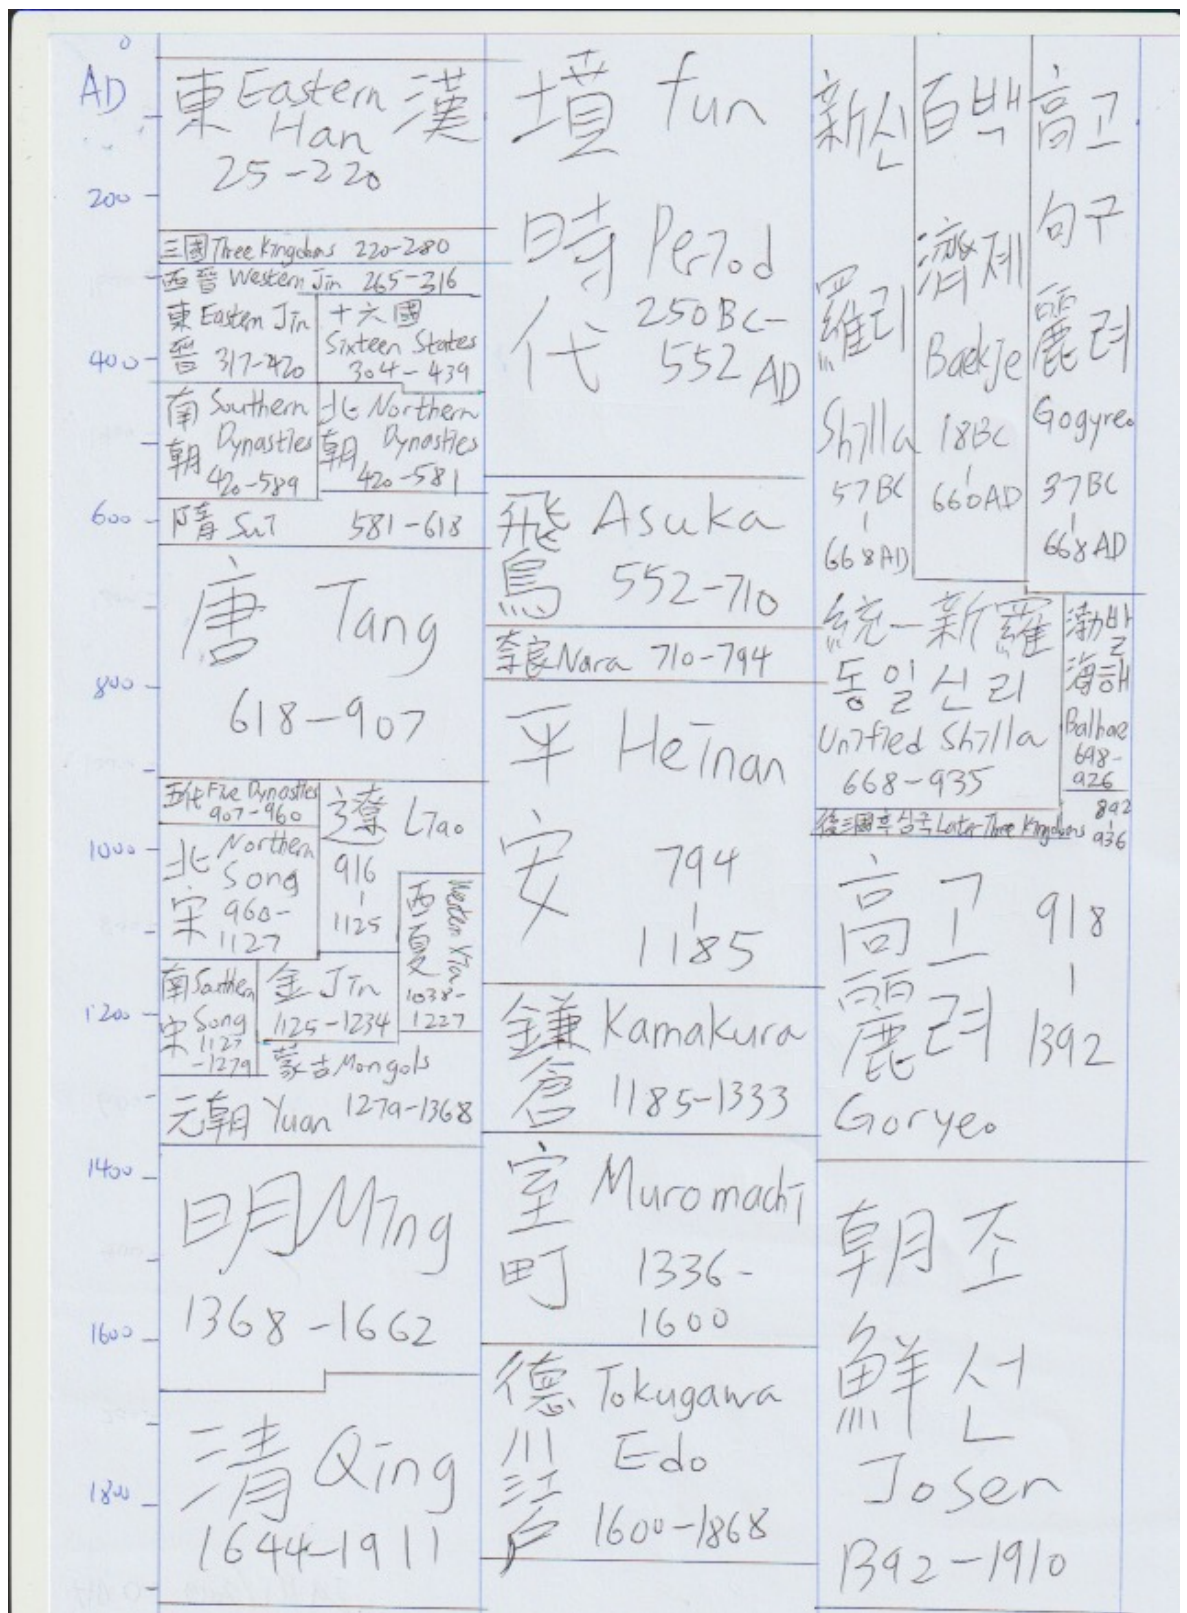 0
AD
200
400
600
800
1000
1200
1400
1600
1800
東 Eastern 漢
Han
25-220
三國 Three Kingdoms 220-280
西晉 Western Jin 265-316
東 Eastern Jin
晉 317-420
十六國
Sixteen States
304-439
南 Southern
朝 Dynasties
420-589
北 Northern
朝 Dynasties
420-581
隋 Sui 581-618
唐 Tang
618-907
五代 Five Dynasties
907-960
遼 Liao
916
-
1125
北 Northern
宋 Song
960-
1127
西夏 Western Xia
1038-
1227
南 Southern
宋 Song
1127
-1279
金 Jin
1125-1234
蒙古 Mongols
元朝 Yuan 1279-1368
明 Ming
1368-1662
清 Qing
1644-1911
墳 fun
時 Period
代 250BC-
552 AD
飛 Asuka
鳥 552-710
奈良 Nara 710-794
平 Heinan
安 794
-
1185
鎌 Kamakura
倉 1185-1333
室 Muromachi
町 1336-
1600
德 Tokugawa
川 Edo
江
戸 1600-1868
新신
羅리
Shilla
57BC
-
668AD
百백
濟제
Baekje
18BC
-
660AD
高고
句구
麗려
Gogyreo
37BC
-
668AD
統一新羅
동일신리
Unified Shilla
668-935
渤발
海해
Balhae
698-
926
後三國후삼국 Later Three Kingdoms 892
-
936
高고 918
麗려 -
1392
Goryeo
朝조
鮮선
Josen
1392-1910